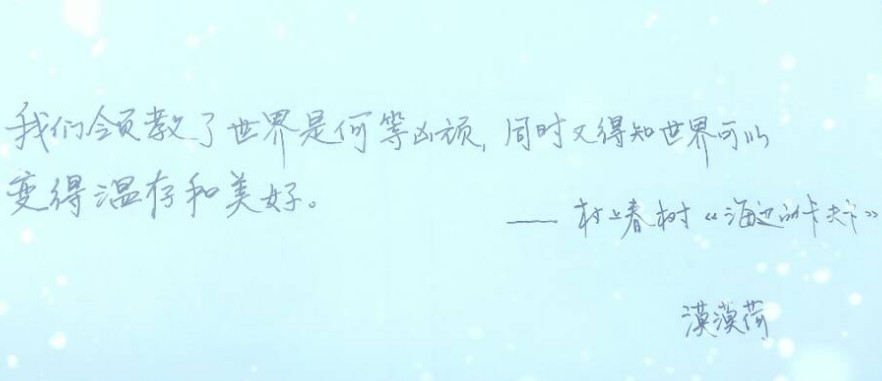 我们领教了世界是何等凶顽,同时又得知世界可以
变得温存和美好。
—— 村上春树《海边的卡夫卡》
漠漠荷